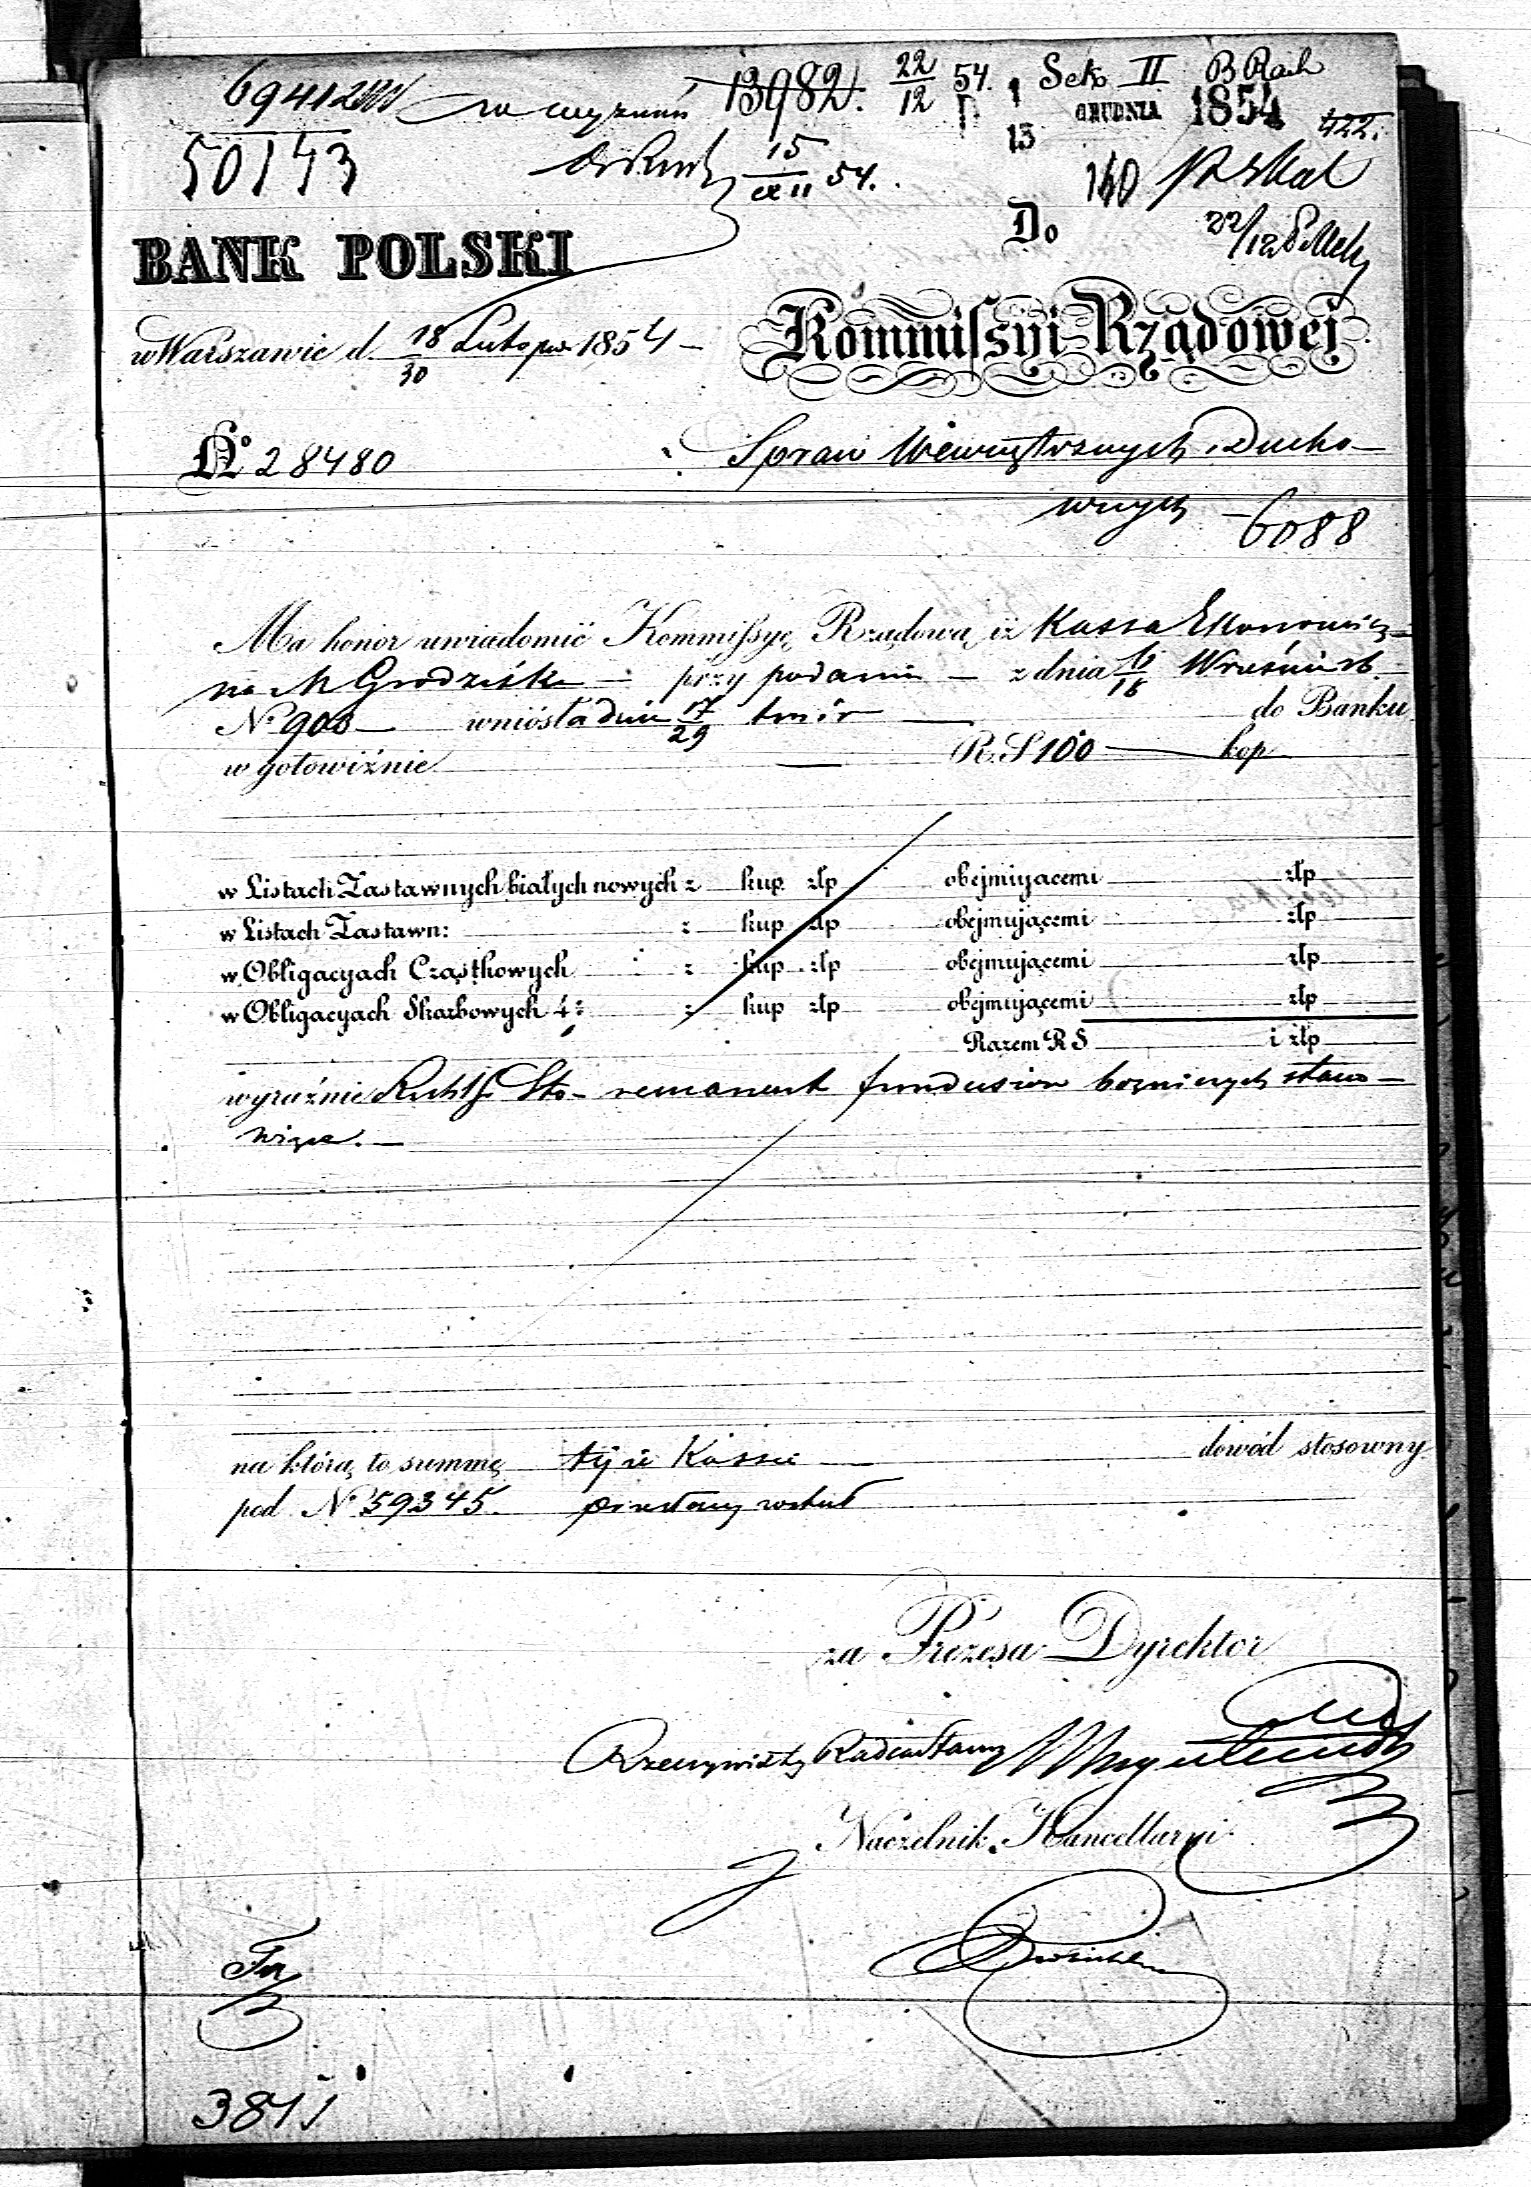 69412
na wyznań 13982. 22/12 54.
Sek II B Rach
1 GRUDNIA 1854
13
422.
50143
15/XII 54.
160
22/12
BANK POLSKI
Do
w Warszawie d. 18/30 Listopa 1854
Kommissyi Rządowej
No 28480
Spraw Wewnętrznych i Ducho-
wnych
6088
Ma honor uwiadomić Kommissyę Rządową iż Kassa Ekonomicz-
na M Grodziska przy podaniu z dnia 6/18 Wrześnie rb.
No 900 wniosła dnia 17/29 t m i r do Banku
w gotowiźnie R. S 100 kop
w Listach Zastawnych białych nowych z kup złp obejmującemi złp
w Listach Zastawn: z kup złp obejmującemi złp
w Obligacyach Cząstkowych z kup złp obejmującemi złp
w Obligacyach Skarbowych 4: z kup złp obejmującemi złp
Razem R S i złp
wyraźnie Sto remanent funduszów bożniczych stano-
wiące.
na którą to summę tejże Kassie dowód stosowny
pod No 59345. przesłany został
za Prezesa Dyrektor
Rzeczywisty Radca Stanu
Naczelnik Kancellaryi
3811